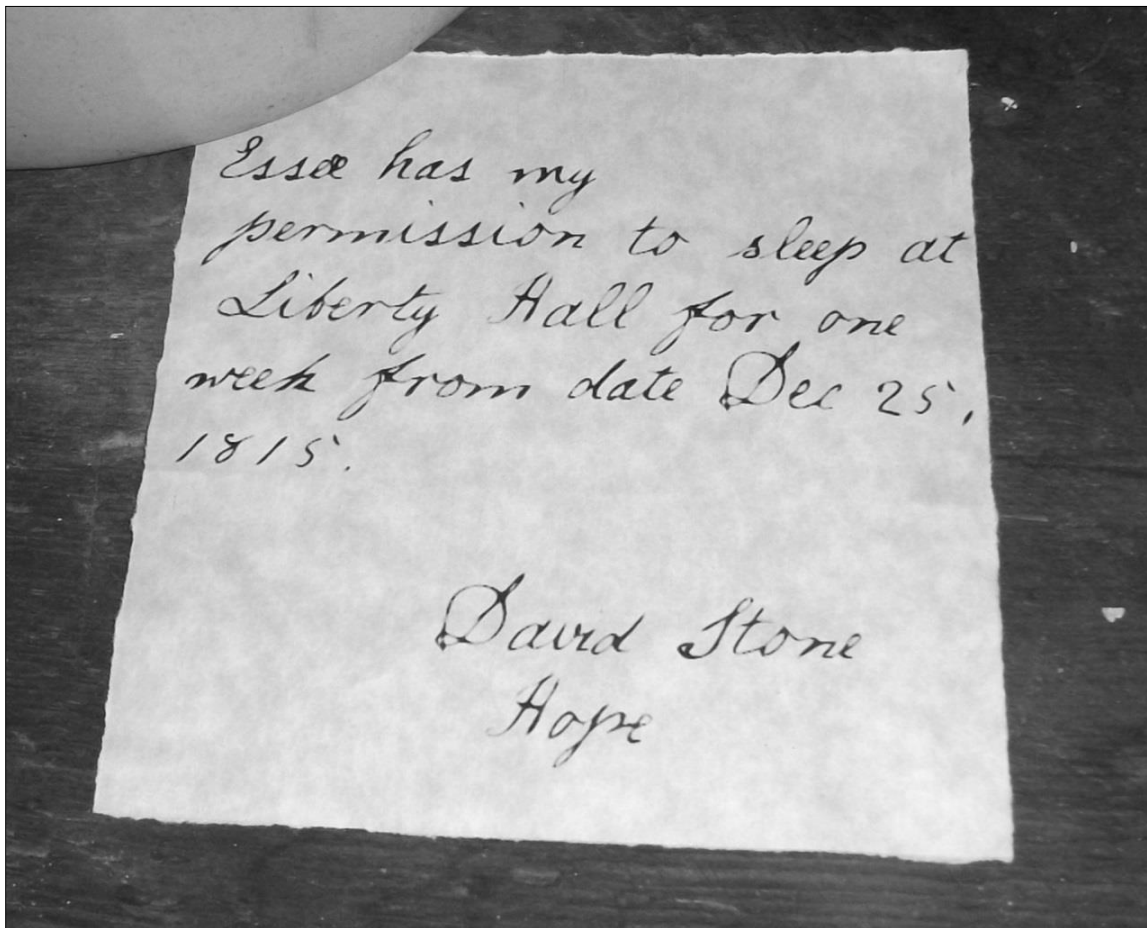 Essex has my
permission to sleep at
Liberty Hall for one
week from date Dec 25,
1815.
David Stone
Hope